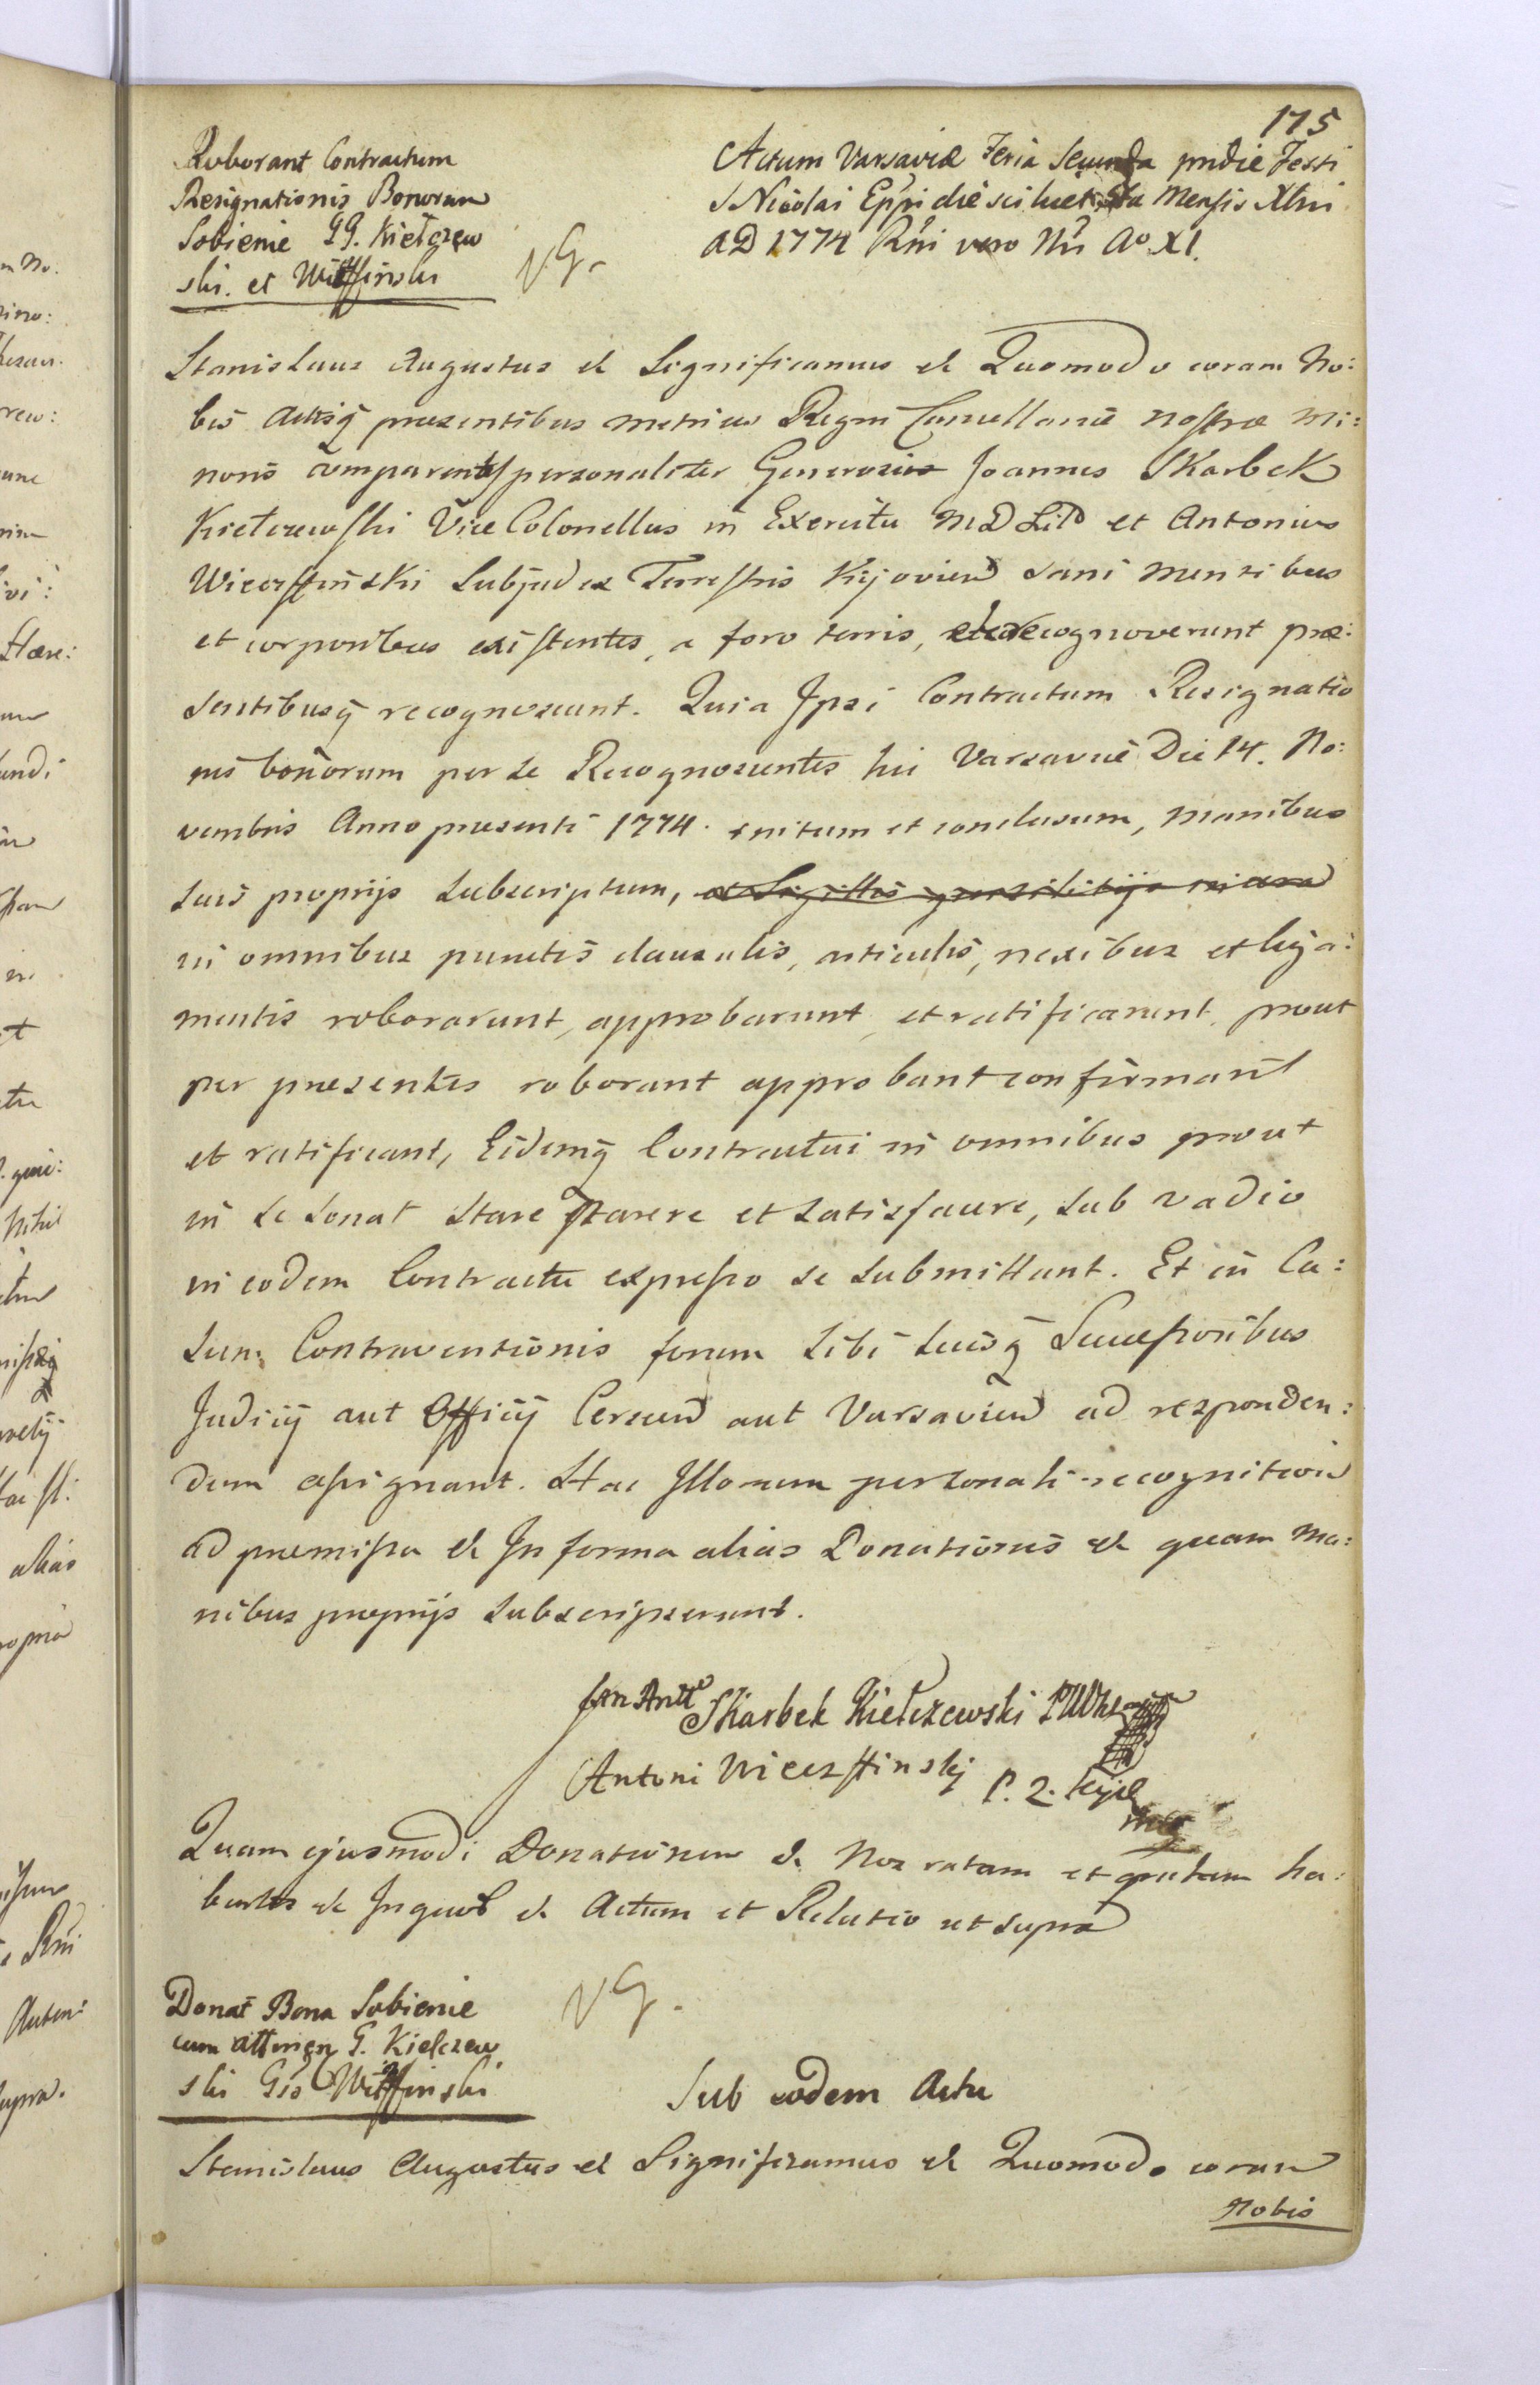 175
Roborant Contractum
Resignationis Bonorum
Sobienie GG. Kiełczew
ski. et Witffinski
VG.
Actum Varsaviæ Feria Secunda pridie Festi
S Nicolai Eppi die scilicet 5ta Mensis Xbri
AD 1774 Rni vero Nri Ao XI.
Stanislaus Augustus et Significamus et Quomodo coram No:
bis Actisq præsentibus Metrices Regni Cancellariæ nostræ Mi:
noris comparentes personaliter Generosi Joannes Skarbek
Kiełczewski Vice Colonellus in Exercitu MD Litt et Antonius
Wiczffinski Subjudex Terrestris Kijovien sani mentibus
et corporibus existentes, a foro terris, recognoverunt præ:
sentibusq recognoscunt. Quia Ipsi Contractum Resignatio
nis bonorum per se Recognoscentes hic Varsaviæ Die 14. No:
vembris Anno præsenti 1774. initum et conclusum, manibus
suis proprijs subscriptum, et Sigillis
in omnibus punctis clausulis, articulis, nexibus et liga:
mentis roborarunt, approbarunt, et ratificarunt, prout
per præsentes roborant approbant confirmant
et ratificant, Eidemq Contractui in omnibus prout
in se sonat stare parere et satisfacere, sub vadio
in eodem Contractu expresso se submittunt. Et in Ca:
sum Contraventionis forum sibi suisq Successoribus
Judicij aut Officij Cersen aut Varsavien ad responden:
dum assignant. Hac Illorum personali recognitione
ad præmissa et In forma alias Donationis et quam Ma:
nibus proprijs subscripserunt.
Jan Antt Skarbek Kiełczewski
Antoni Wiczffinskij P. Z. Kijo
mp
Quam ejusmodi Donationem et Nos ratam et gratam ha:
bentes et Inquor et Actum et Relatio ut supra
Donat Bona Sobienie
cum attinen G. Kielczew
ski Gso Witffinski
VG.
Sub eodem Actu
Stanislaus Augustus et Significamus et Quomodo coram
Nobis